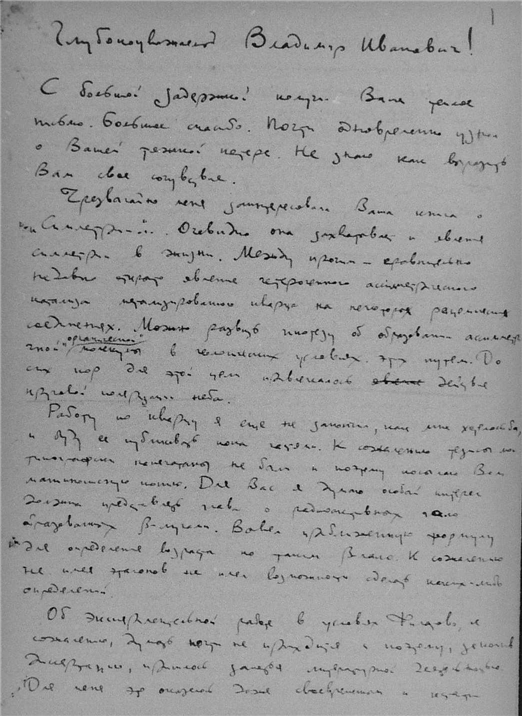 1
Глубокоуважаемый Владимир Иванович!
С большой задержкой получил Ваше теплое
письмо. Большое спасибо. Почти одновременно узнал
о Вашей тяжкой потере. Не знаю как выразить
Вам свое сочувствие.
Чрезвычайно меня заинтересовала Ваша книга о
Симметрии. Очевидно она захватывает и явления
симметрии в жизни. Между прочим сравнительно
недавно открыто явление гетерогенного асимметрического
катализа металлизированного кварца на некоторых рацемических
соединениях. Можно развить гипотезу об образовании
органической
в условиях этим путем. До
сих пор для этой цели привлекалось действие
круговой поляризации неба.
Работу по кварцу я еще не закончил, как мне хотелось бы,
и буду ее публиковать пока частями. К сожалению
не были и поэтому посылаю Вам
машинописную копию. Для Вас я думаю особый интерес
должна представлять глава о радиоактивных гало
образованных α лучами. Вывел приближенную формулу
для определения возраста по таким гало. К сожалению
не имея эталонов не имел возможности сделать каких-либо
определений
Об экспериментальной работе в условиях к
сожалению, думать почти не приходится и поэтому, закончив
диссертацию, пришлось заняться литературной деятельностью.
Для меня это оказалось даже своевременным и